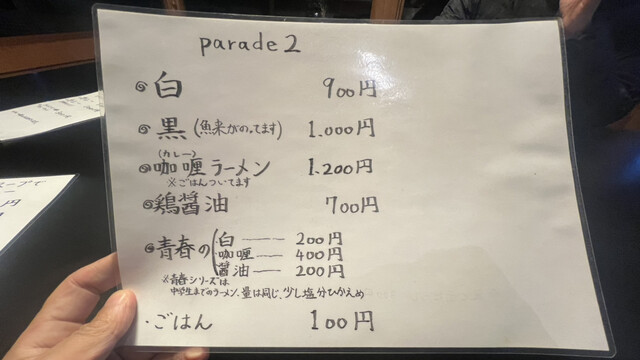 parade 2
白 900円
黒 (魚粉がのってます) 1.000円
(カレー)
咖喱ラーメン 1.200円
※ごはんついてます
鶏醤油 700円
青春の
白 200円
咖喱 400円
醤油 200円
※青春シリーズは
中学生までのラーメン、量は同じ、少し塩分ひかえめ
・ごはん 100円